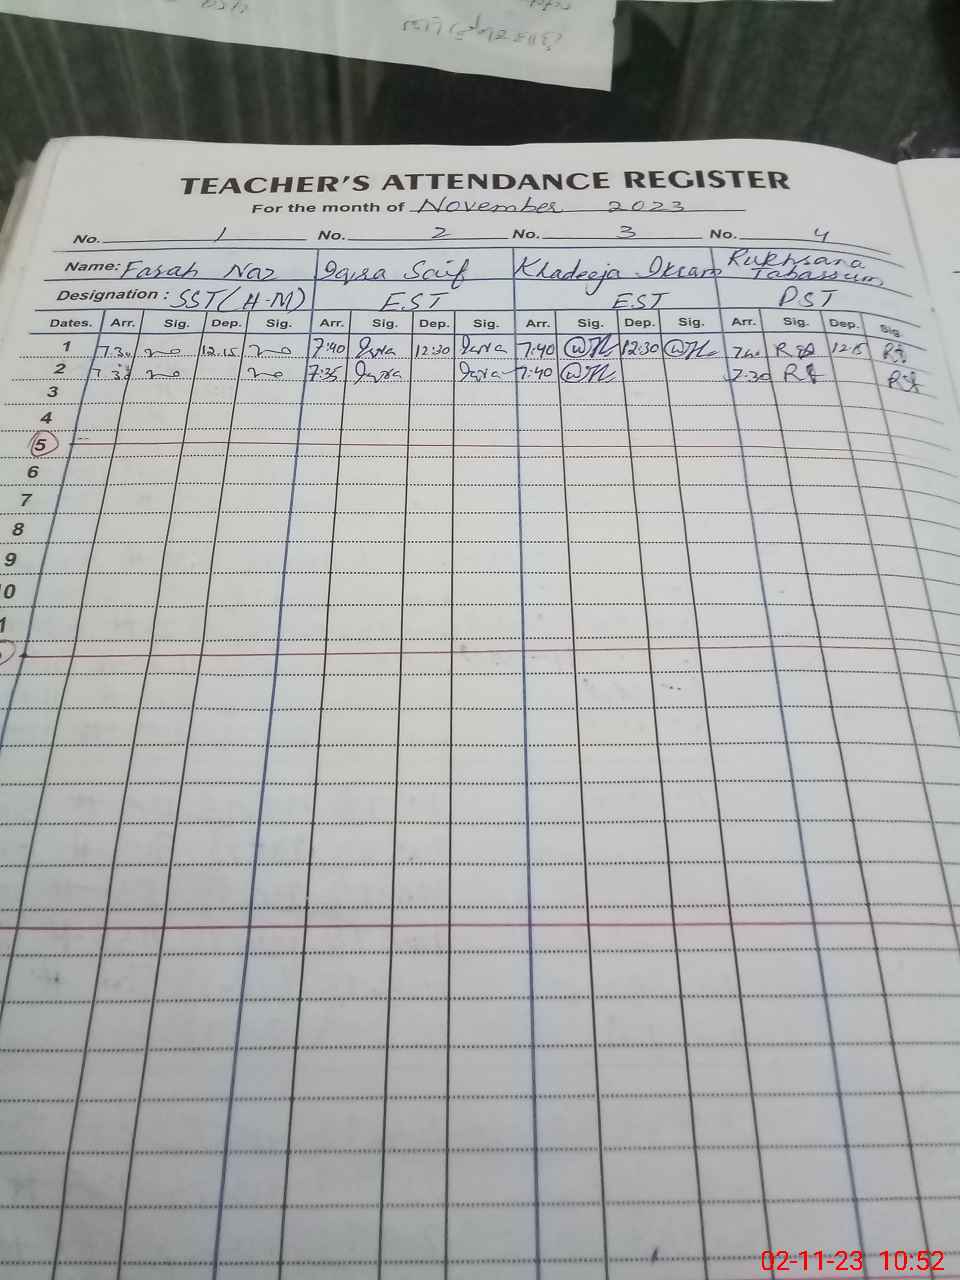 TEACHER'S ATTENDANCE REGISTER
For the month of November 2023
No. 1 No. 2 No. 3 No. 4
Name: Farah Naz Iqra Saif Khadeeja Ikram Rukhsana Tabassum
Designation: SST (H-M) E.ST EST PST
Dates. Arr. Sig. Dep. Sig. Arr. Sig. Dep. Sig. Arr. Sig. Dep. Sig. Arr. Sig. Dep. Sig.
1 7.30 12.15 7:40 Iqra 12:30 Iqra 7:40 12:30
2 7.30 7:35 Iqra Iqra 7:40 7:30
3
4
5
6
7
8
9
0
1
02-11-23 10:52